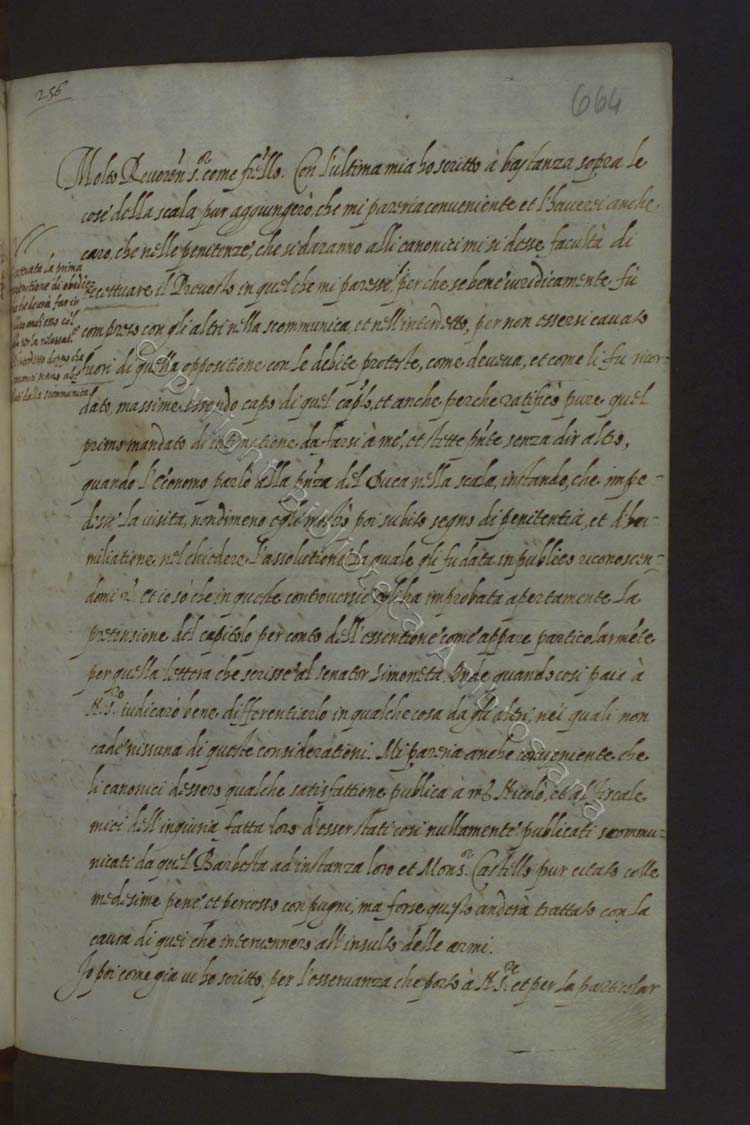 256
664
Molto Reveren. s.or come fr̃ello. Con l'ultima mia ho scritto à bastanza sopra le
cose della scala pur aggiungerò, che mi pareria conveniente et l'haverei anche
caro, che nelle penitenze, che si daranno alli canonici mi si desse facultà di
eccettuare il Prevosto in quel che mi paresse, perche se bene iuridicamente fù
compreso con gli altri nella scommunica, et nell'interdetto, per non essersi cavato
fuori di quella oppositione con le debite proteste, come deveva, et come li fu ricor-
dato, massime essendo capo di quel cap.lo, et anche perche ratificò pure quel
primo mandato di intimatione da farsi à me, et stette pñte senza dir altro,
quando l'Economo parlò alla pñza del Duca nella scala, instando, che impe-
disse la visita, nondimeno egli mostrò poi subito segno di penitentia, et d'hu-
miliatione, nel chiedere l'assolutione la quale gli fu data in publico riconoscen-
domi
et io sò che in queste controversie egli ha improbata apertamente la
pretensione del capitolo per conto dell'essentione come appare particolarmẽte
per quella lettera che scrisse al senator Simoneta. Onde quando così paia à
N. S.re iudicarò bene differentiarlo in qualche cosa da gli altri, nei quali non
cade nissuna di queste considerationi. Mi pareria anche conveniente che
li canonici dessero qualche satisfattione publica à m. Nicolò, et al fiscale
miei dell'ingiuria fatta loro d'esser stati così nullamente publicati scommu-
nicati da quel Barbesta ad instanza loro et Mons.or Castillo pur citato colle
medesime pene, et percosso con pugni, ma forse questo anderà trattato con la
causa di quei che intervennero all'insulto delle armi.
Io poi come già vi ho scritto, per l'osservanza che porto à N. S.re et per la particolar